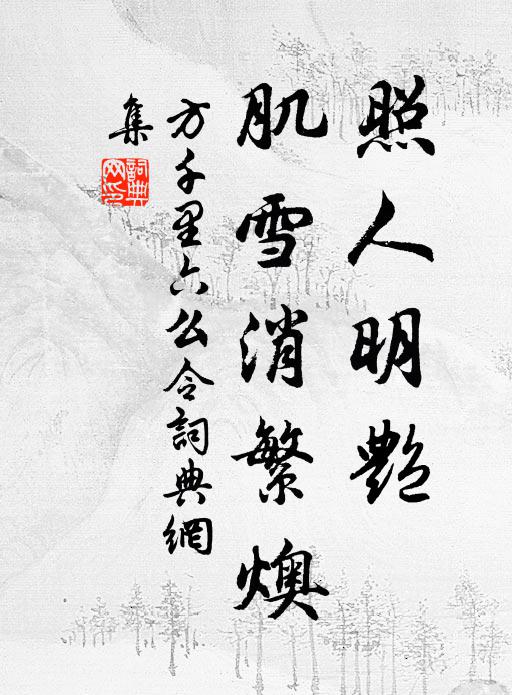 照人明艷
肌雪消繁燠
方千里六么令詞典網
集
詞典網印